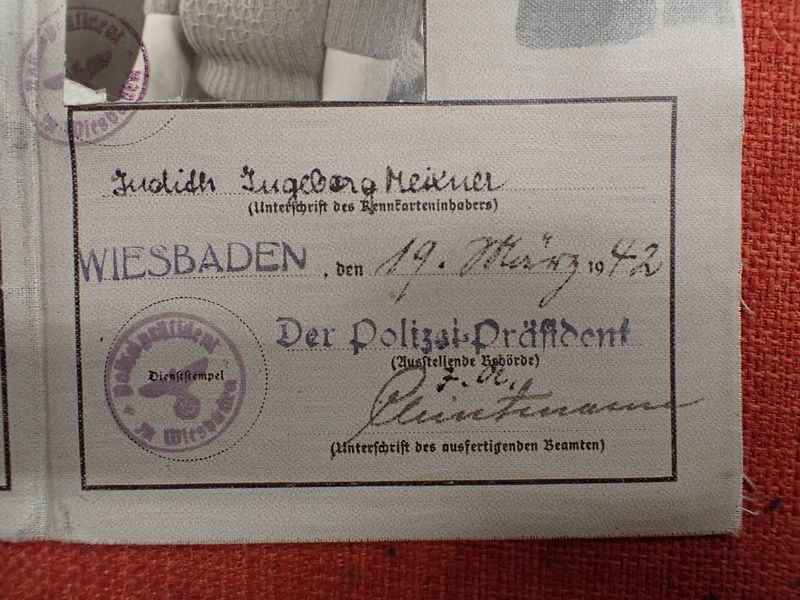 Judith Ingeborg Meixner
(Unterschrift des Kennkarteninhabers)
WIESBADEN, den 19. März 1942
Der Polizei-Präsident
(Ausstellende Behörde)
Dienststempel
Polizeipräsident
in Wiesbaden
(Unterschrift des ausfertigenden Beamten)